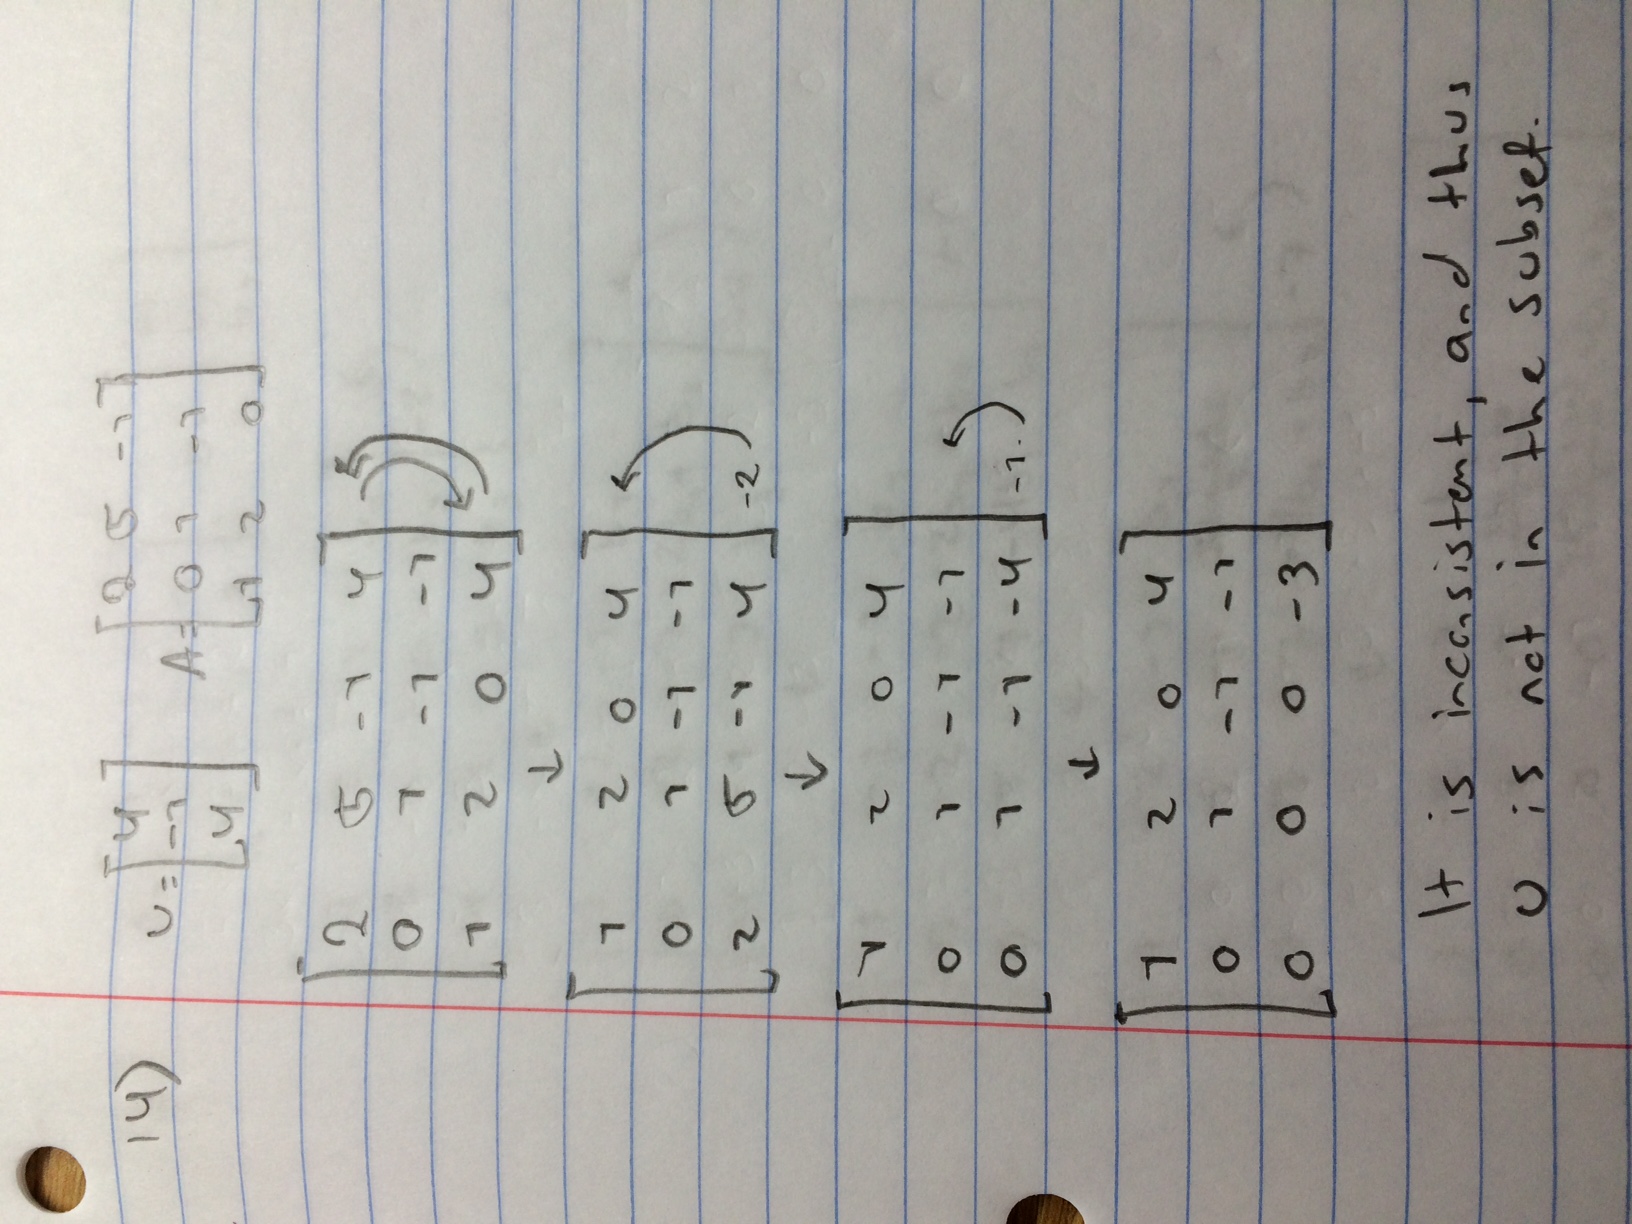 14) U = [4 -1 4] A = [2 5 -1
0 1 -1
1 2 0]
[2 5 -1 4
0 1 -1 -1
1 2 0 4]
↓
[1 2 0 4
0 1 -1 -1
2 5 -1 4] -2
↓
[1 2 0 4
0 1 -1 -1
0 1 -1 -4] -1.
↓
[1 2 0 4
0 1 -1 -1
0 0 0 -3]
It is inconsistent, and thus
U is not in the subset.